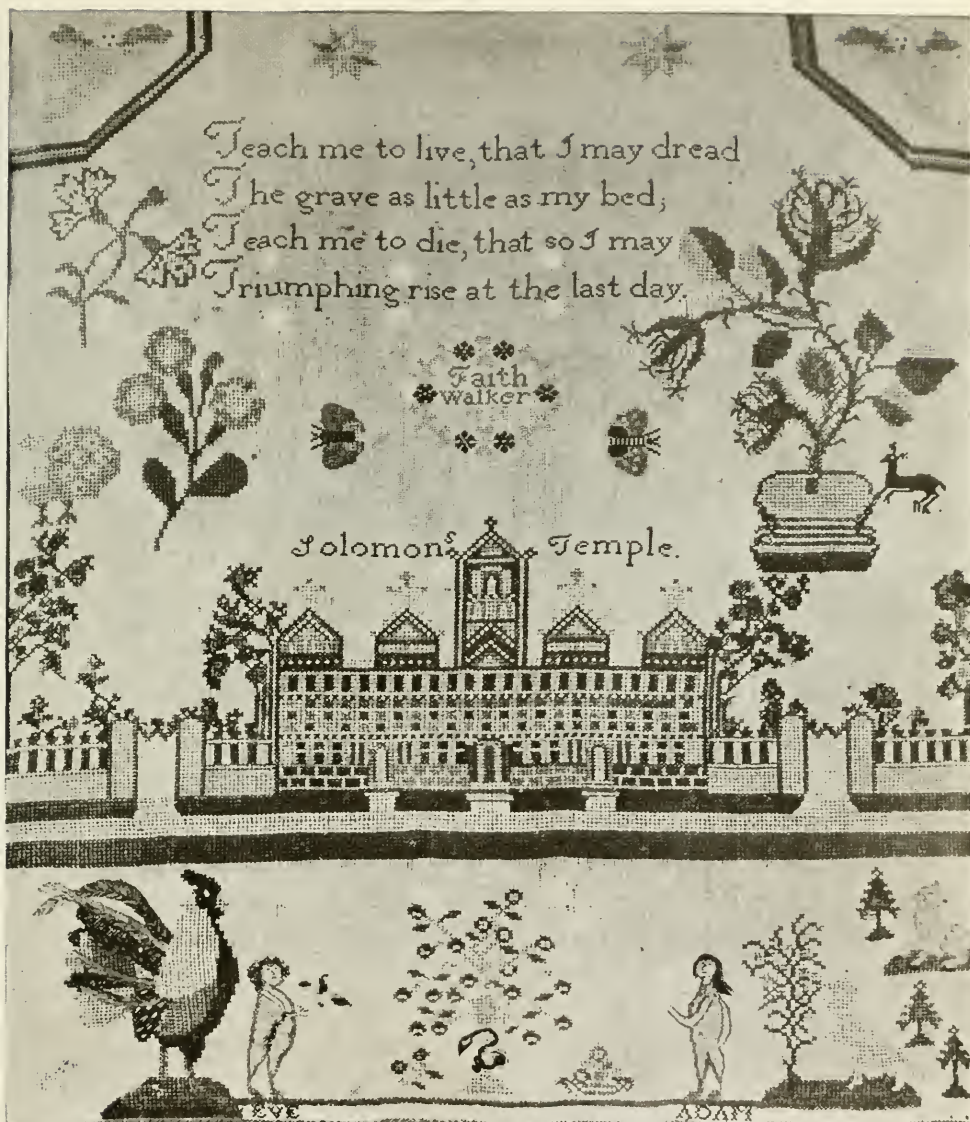 Teach me to live, that I may dread
The grave as little as my bed;
Teach me to die, that so I may
Triumphing rise at the last day.
Faith
Walker
Solomons Temple.
EVE ADAM